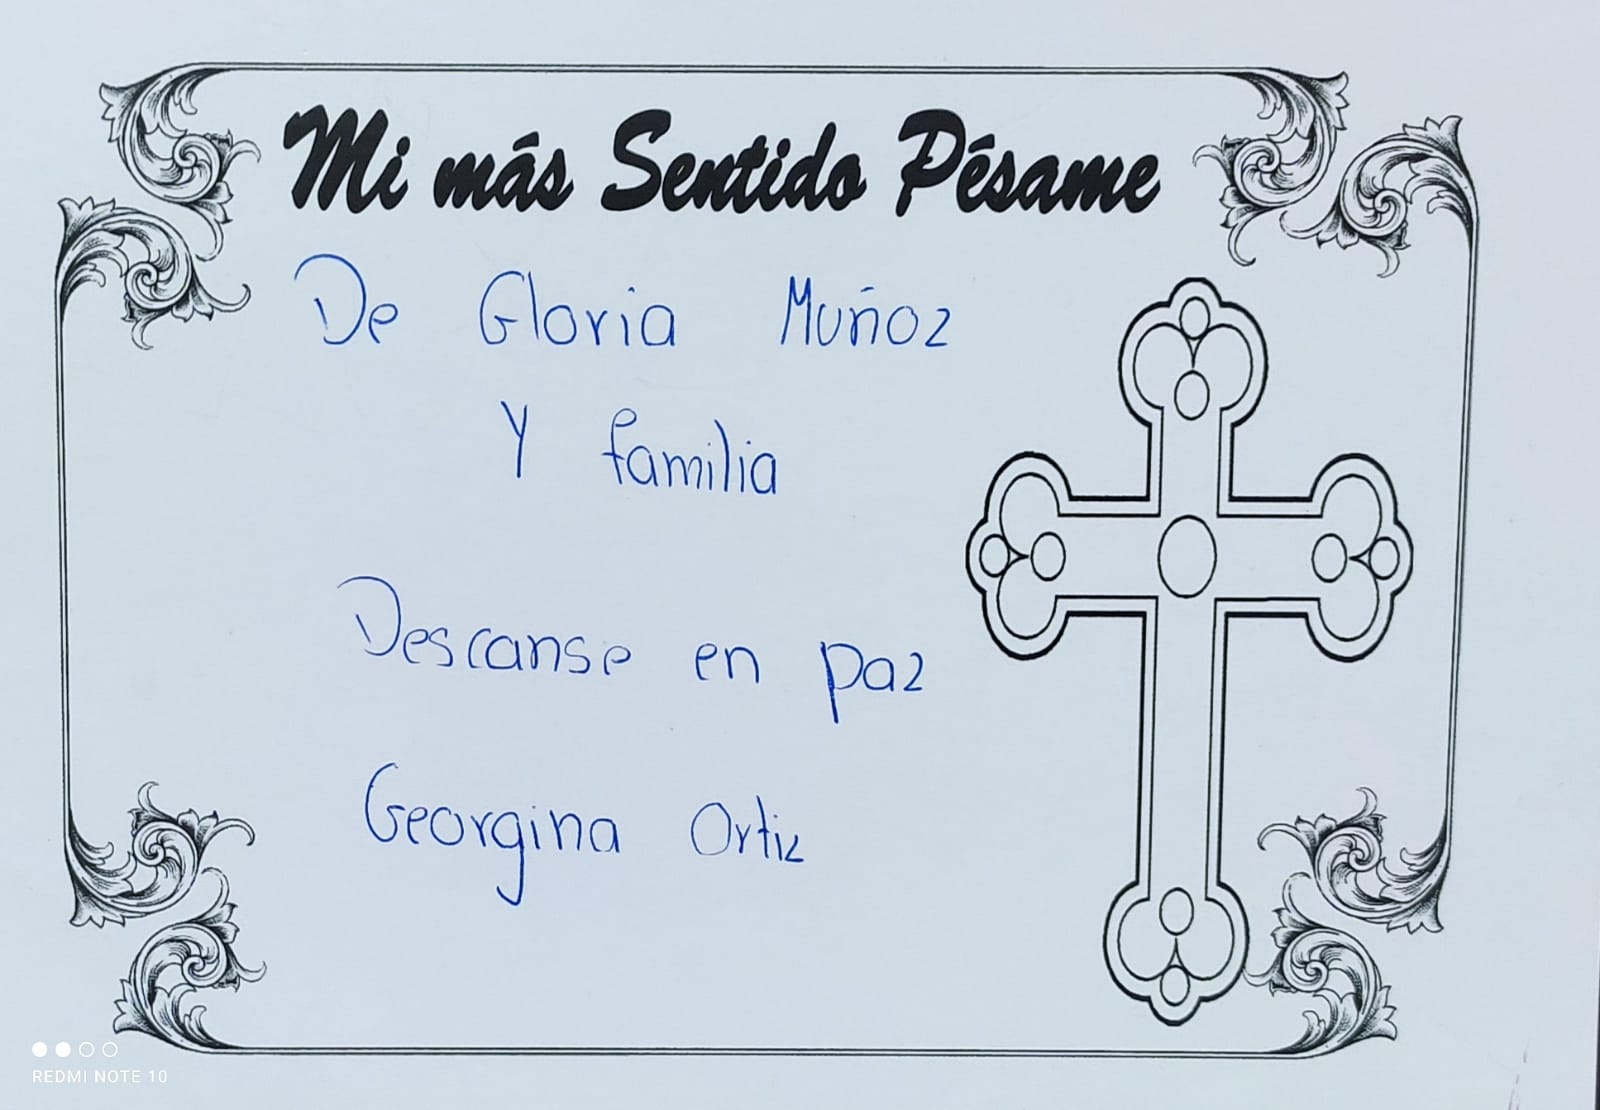 Mi más Sentido Pésame
De Gloria Muñoz
Y familia
Descanse en paz
Georgina Ortiz
REDMI NOTE 10